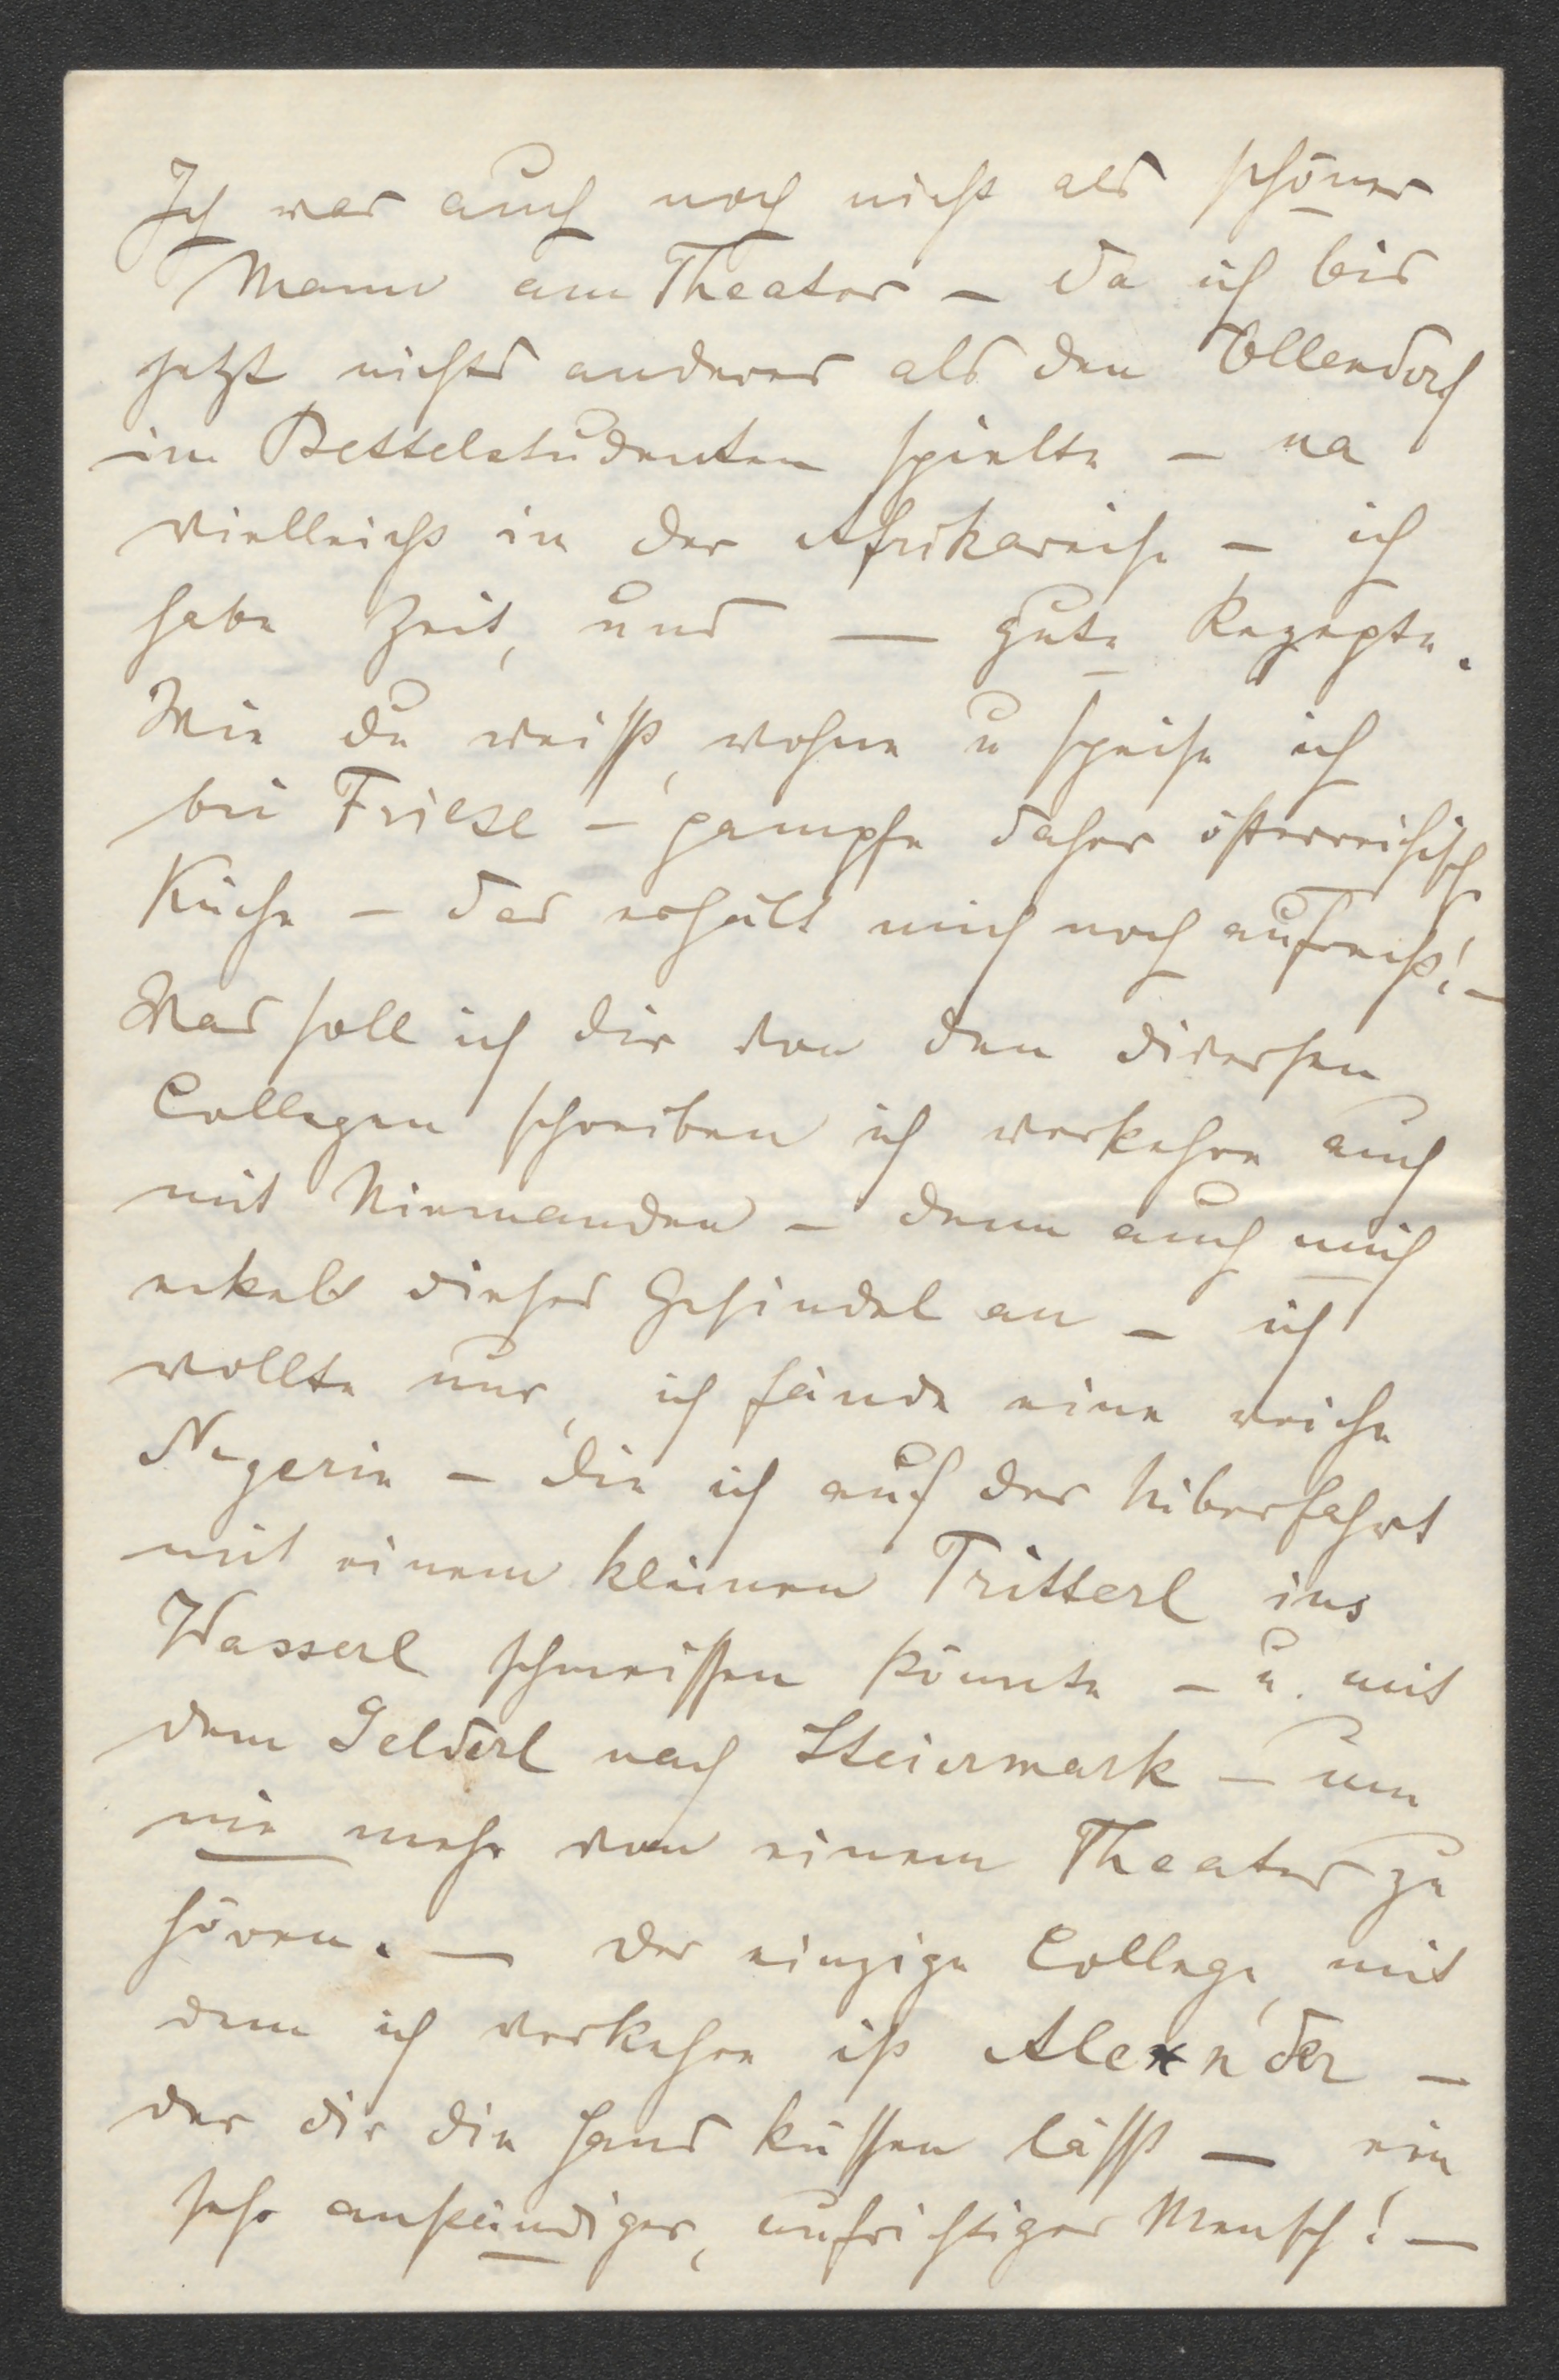 Ich war auch noch nicht als schöner
Mann am Theater – da ich bis
jetzt nichts anderes als den Ollendorf
im Bettelstudenten spielte – na
vielleicht in der Afrikareise – ich
habe Zeit, und — gute Rezepte.
Wie du weißt, wohne u speise ich
bei Friese – gampfe daher österreichische
Küche – das erhält mich noch aufrecht! –
Was soll ich dir von den diversen
Collegen schreiben ich verkehre auch
mit Niemanden – denn auch mich
eckelt dieses Gesindel an – ich
wollte nur, ich fände eine reiche
Negerin – die ich auf der Überfahrt
mit einem kleinen Tritterl ins
Wasserl schmeissen könnte – u. mit
dem Gelderl nach Steiermark – um
nie mehr von einem Theater zu
hören. — Der einzige College, mit
dem ich verkehre ist Alexnder –
der dir die Hand küssen lässt — ein
sehr anständiger, aufrichtiger Mensch! —